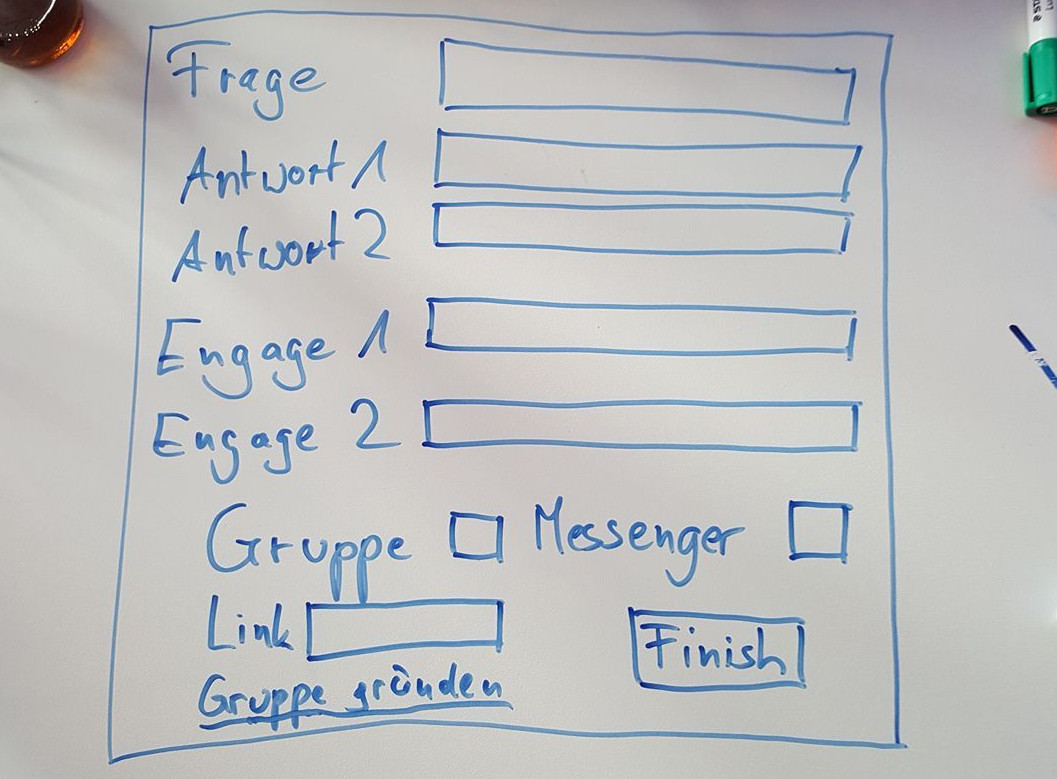 Frage
Antwort 1
Antwort 2
Engage 1
Engage 2
Gruppe Messenger
Link Finish
Gruppe gründen